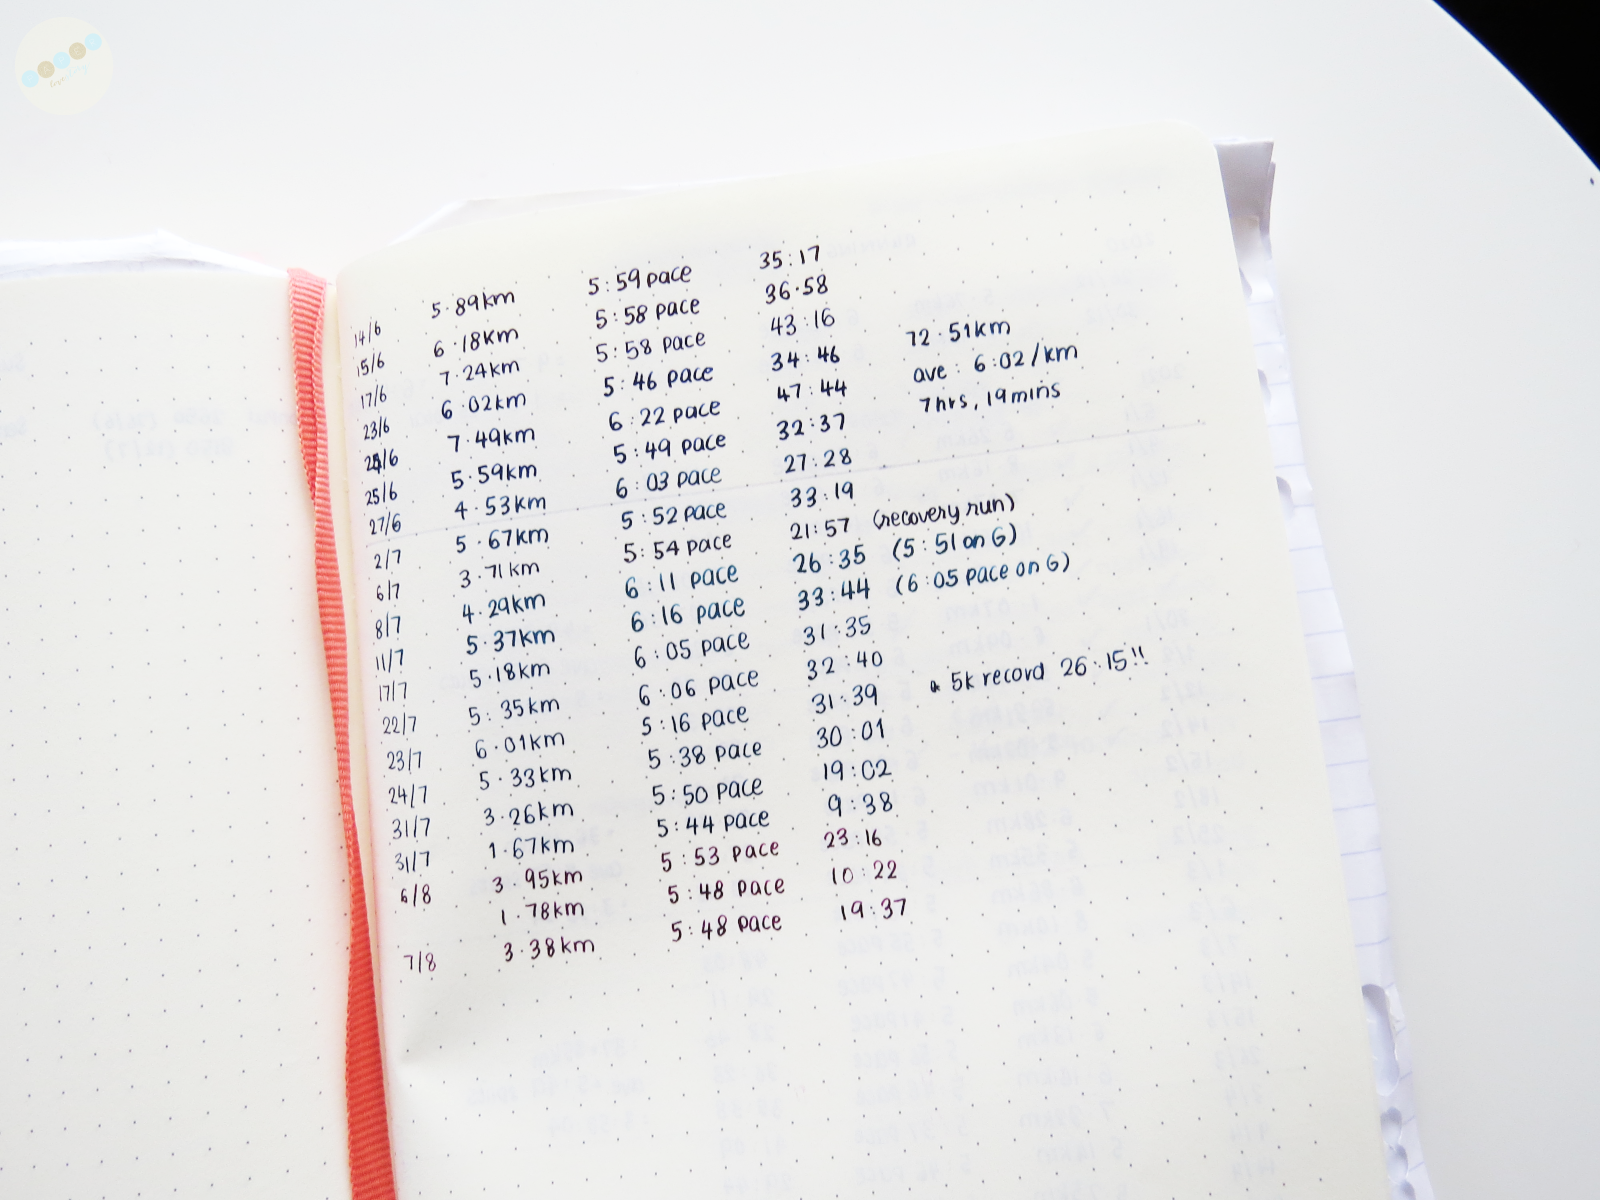 14/6 5.89km 5:59 pace 35:17
15/6 6.18km 5:58 pace 36.58
17/6 7.24km 5:58 pace 43:16
23/6 6.02km 5:46 pace 34:46 72.51km
24/6 7.49km 6:22 pace 47:44 ave: 6:02/km
25/6 5.59km 5:49 pace 32:37 7hrs, 19mins
27/6 4.53km 6:03 pace 27:28
2/7 5.67km 5:52 pace 33:19
6/7 3.71km 5:54 pace 21:57 (recovery run)
8/7 4.29km 6:11 pace 26:35 (5:51 on G)
11/7 5.37km 6:16 pace 33:44 (6:05 pace on G)
17/7 5.18km 6:05 pace 31:35
22/7 5.35km 6:06 pace 32:40
23/7 6.01km 5:16 pace 31:39 5k record 26.15!!
24/7 5.33km 5:38 pace 30:01
31/7 3.26km 5:50 pace 19:02
31/7 1.67km 5:44 pace 9:38
6/8 3.95km 5:53 pace 23:16
1.78km 5:48 pace 10:22
7/8 3.38km 5:48 pace 19:37